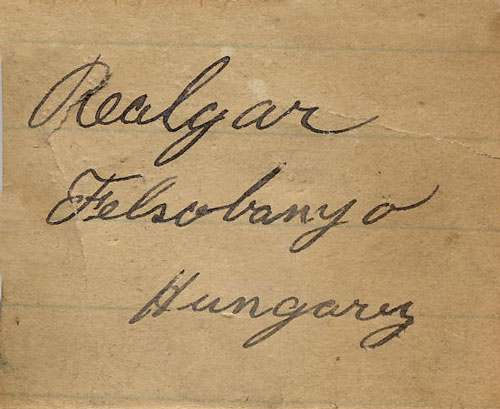 Realgar
Felsobanyo
Hungary